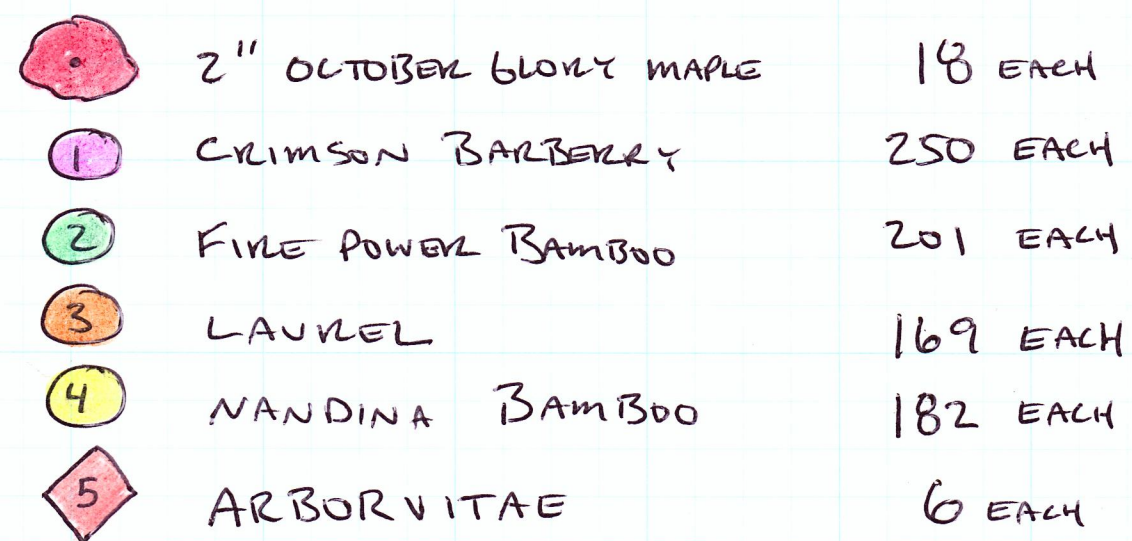 2" OCTOBER GLORY MAPLE 18 EACH
1 CRIMSON BARBERRY 250 EACH
2 FIRE POWER BAMBOO 201 EACH
3 LAUREL 169 EACH
4 NANDINA BAMBOO 182 EACH
5 ARBORVITAE 6 EACH